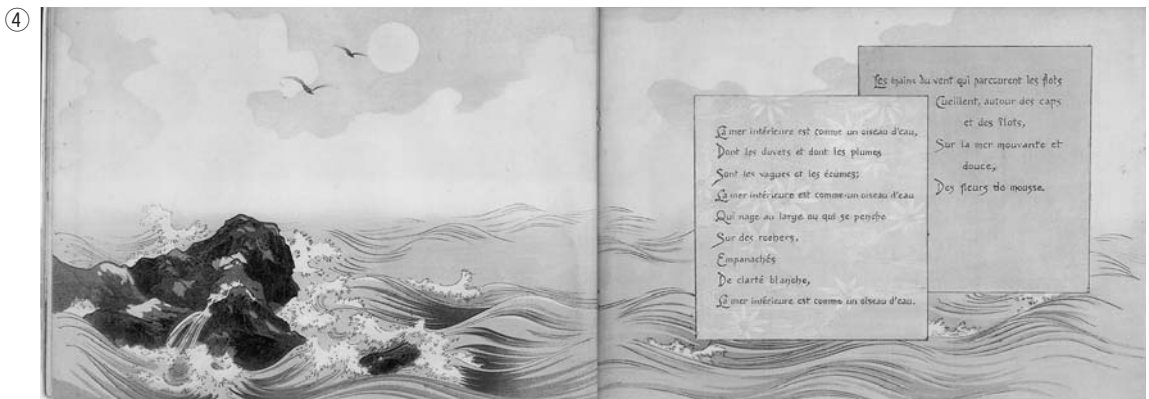 ④
La mer intérieure est comme un oiseau d'eau,
Dont les duvets et dont les plumes
Sont les vagues et les écumes;
La mer intérieure est comme un oiseau d'eau
Qui nage au large ou qui se penche
Sur des rochers,
Empanachés
De clarté blanche,
La mer intérieure est comme un oiseau d'eau.
Les mains du vent qui parcourent les flots
Cueillent, autour des caps
et des îlots,
Sur la mer mouvante et
douce,
Des fleurs de mousse.